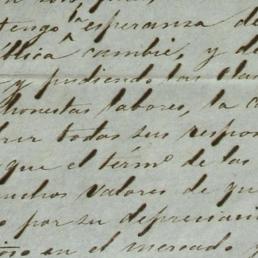 tengo esperanza de
ública cambie, y de
y pudiendo las cla
honestas labores, la c
rir todas sus respon
que el térmᵒ de las
muchos valores de qu
o por su depreciació
en el mercado y